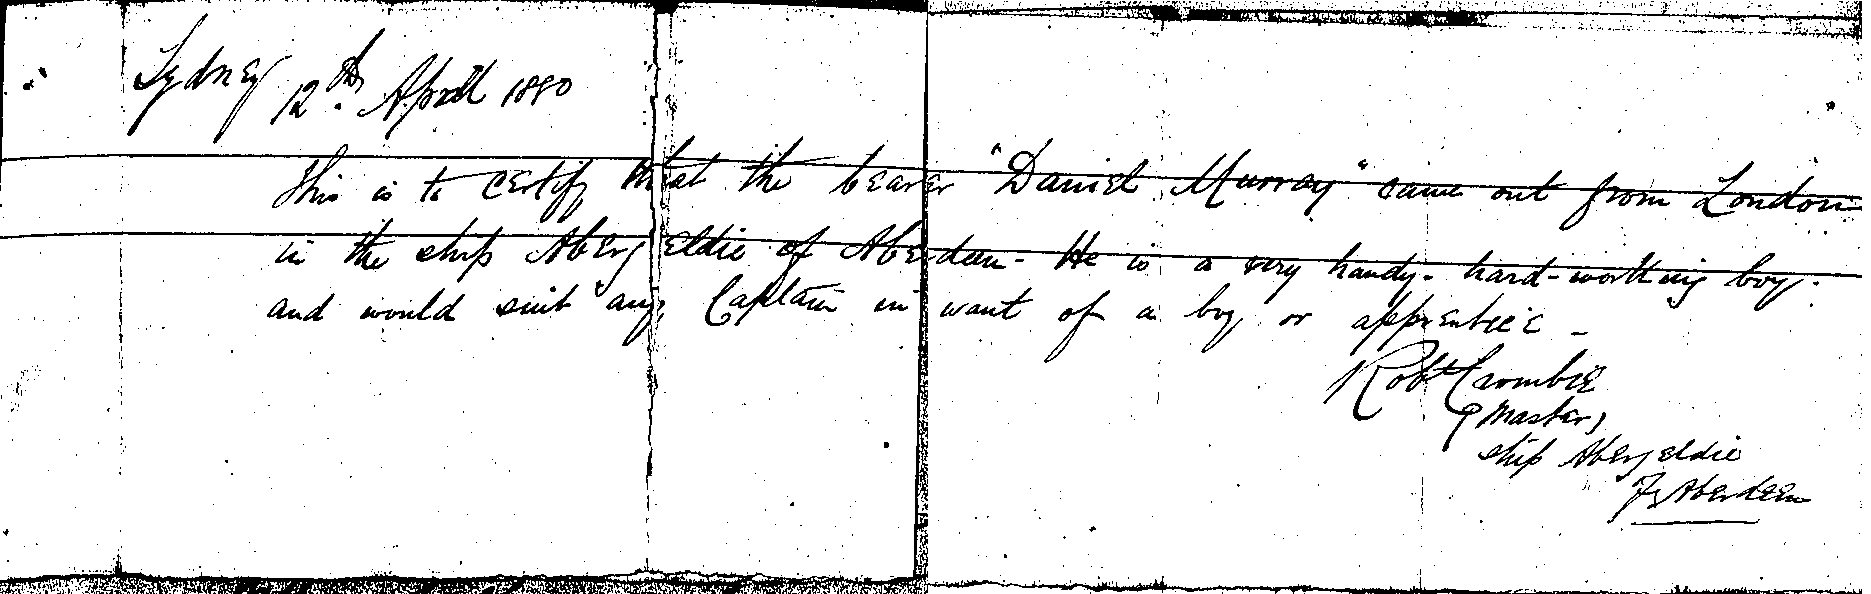 Sydney 12th April 1880
This is to certify that the bearer "Daniel Murray" came out from London
in the ship Abergeldie of Aberdeen - He is a very handy - hard-working boy.
and would suit any Captain in want of a boy or apprentice -
Robt Crombie
(Master)
ship Abergeldie
of Aberdeen